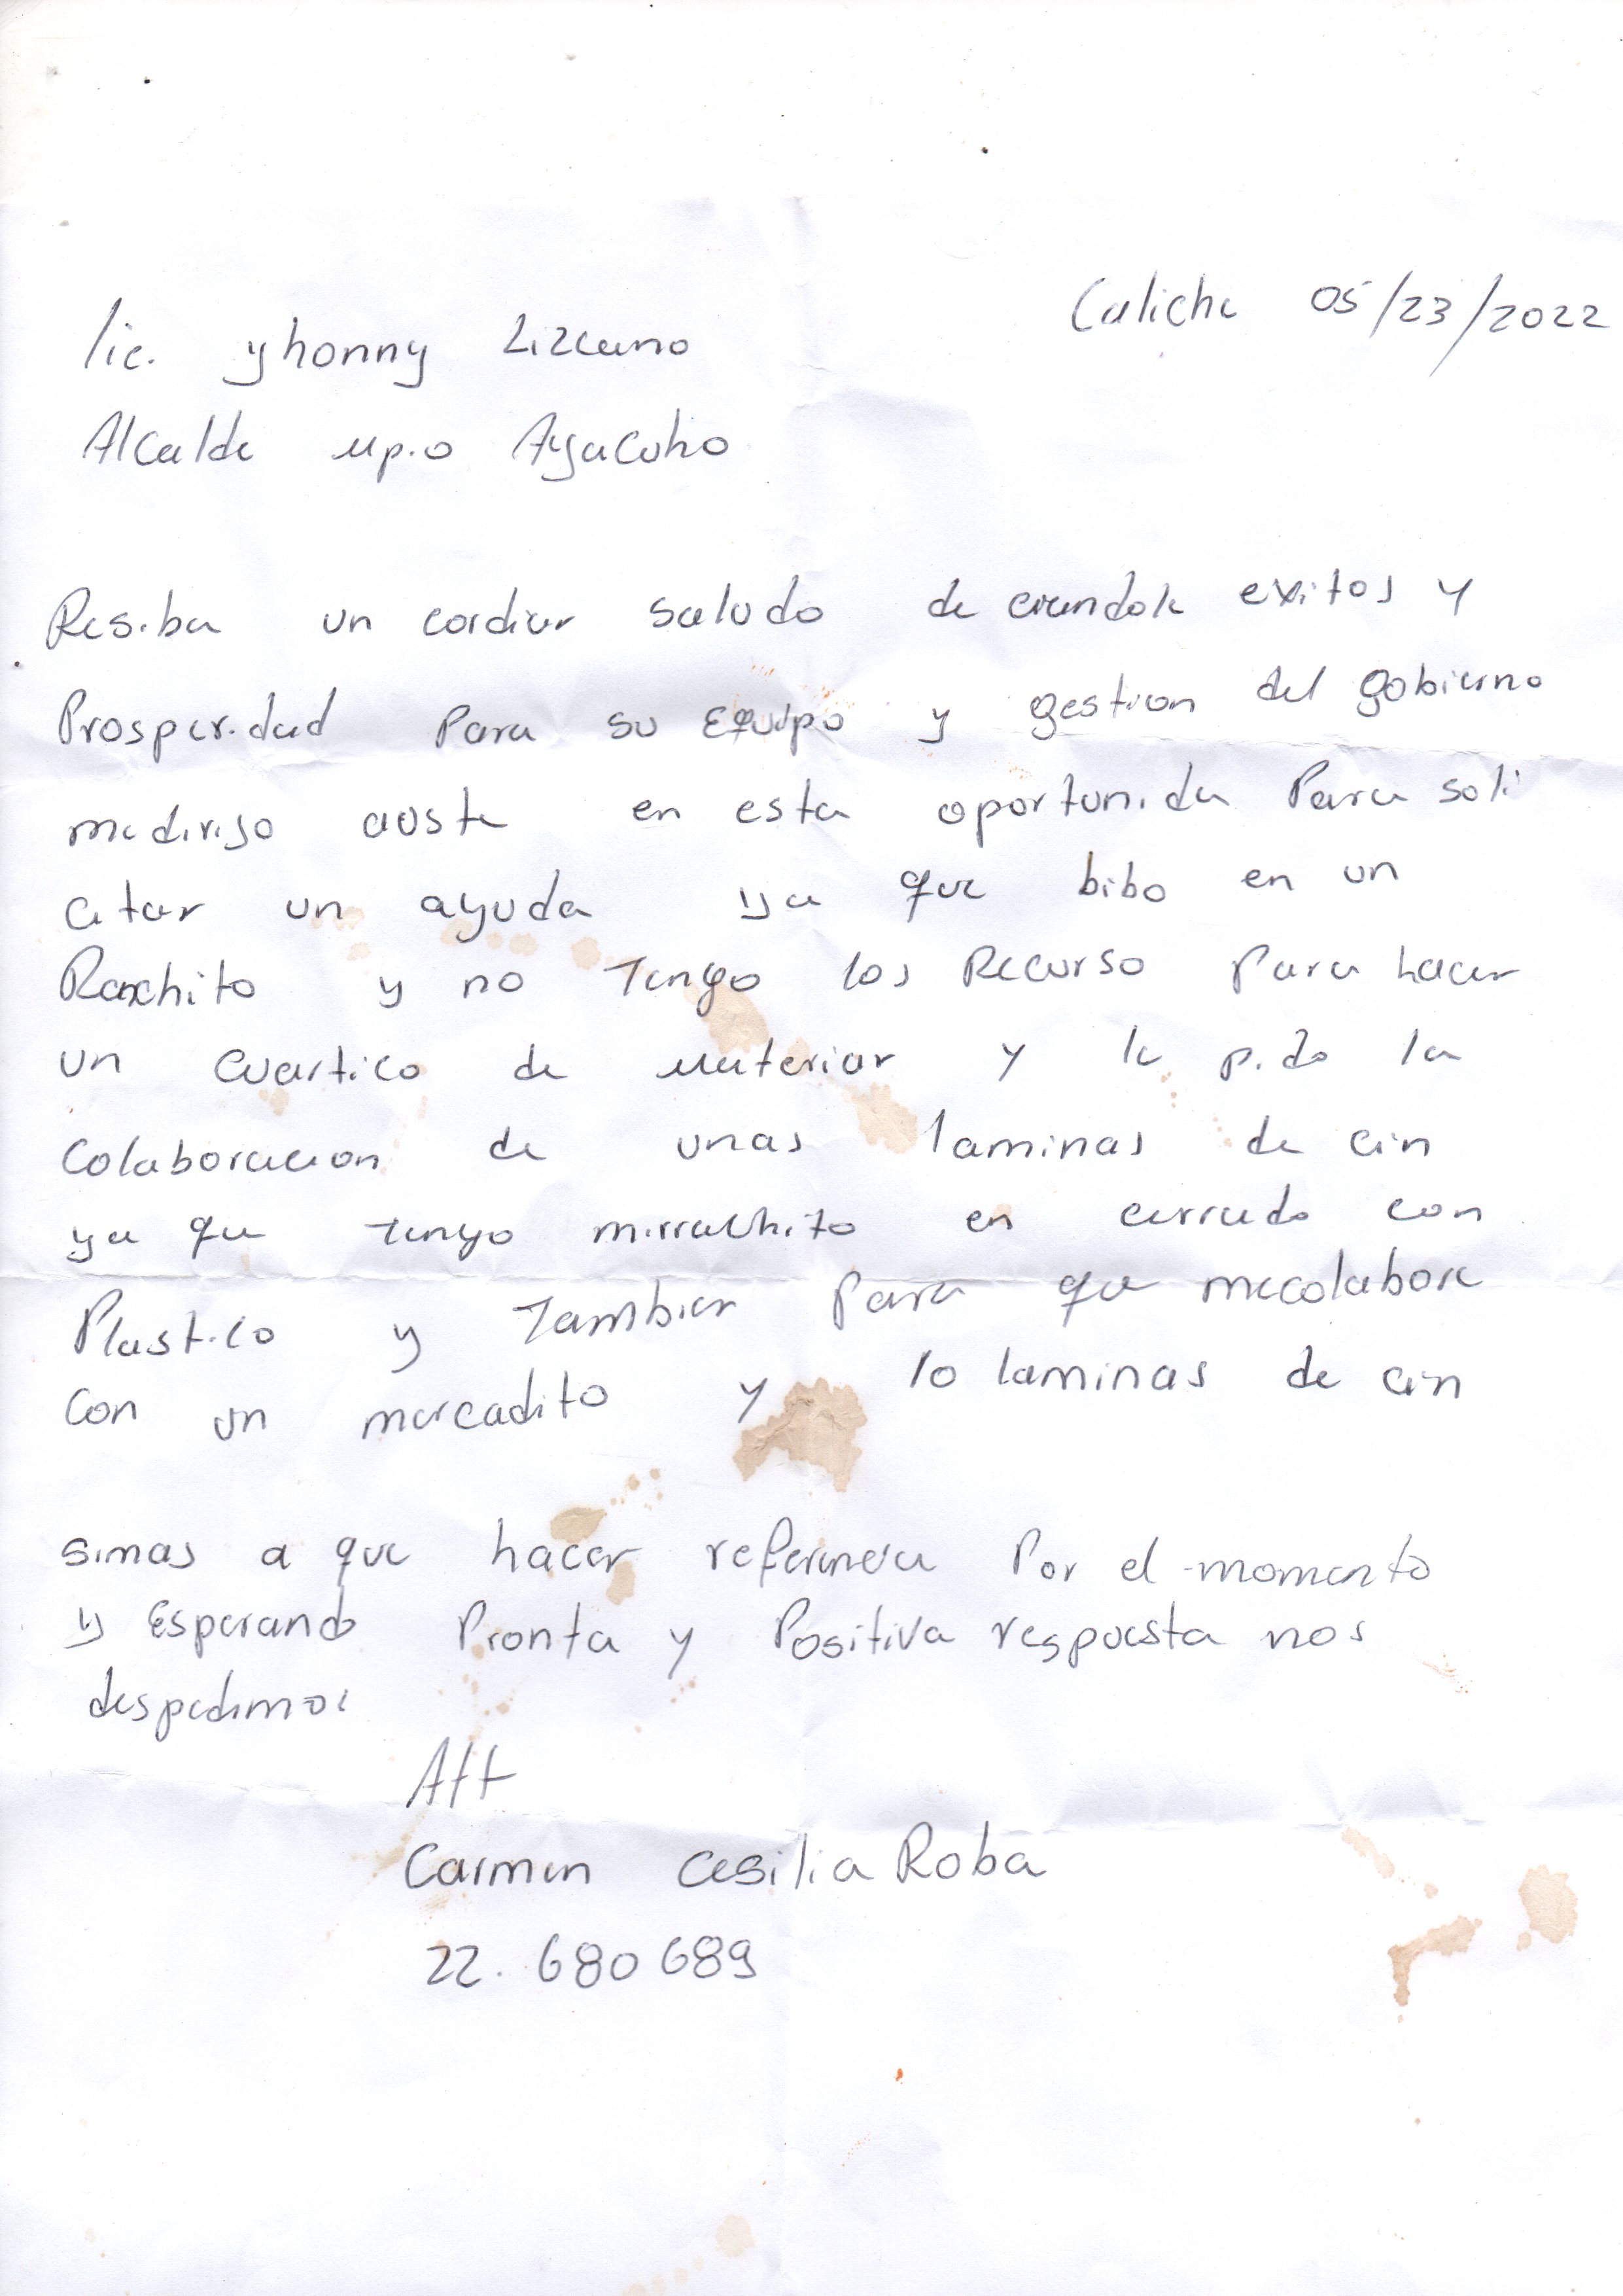 Caliche 05/23/2022
lic. yhonny Lizcano
Alcalde Mp.o Ayacuho
Resiba un cordiar saludo de ceandole exitos y
Prosperidad Para su Equipo y gestion del gobierno
medirijo auste en esta oportunida Para soli
citar un ayuda ya que bibo en un
Ranchito y no Tengo los Recurso Para hacer
un cuartico de Materiar y le pido la
Colaboracion de unas laminas de cin
ya que Tengo mirrachito en cerrado con
Plastico y Tambier Para que mecolabore
Con un mercadito y 10 laminas de cin
simas a que hacer referencia Por el momento
y Esperando Pronta y Positiva respuesta nos
despedimos
Att
Carmen Cesilia Roba
22. 680 689